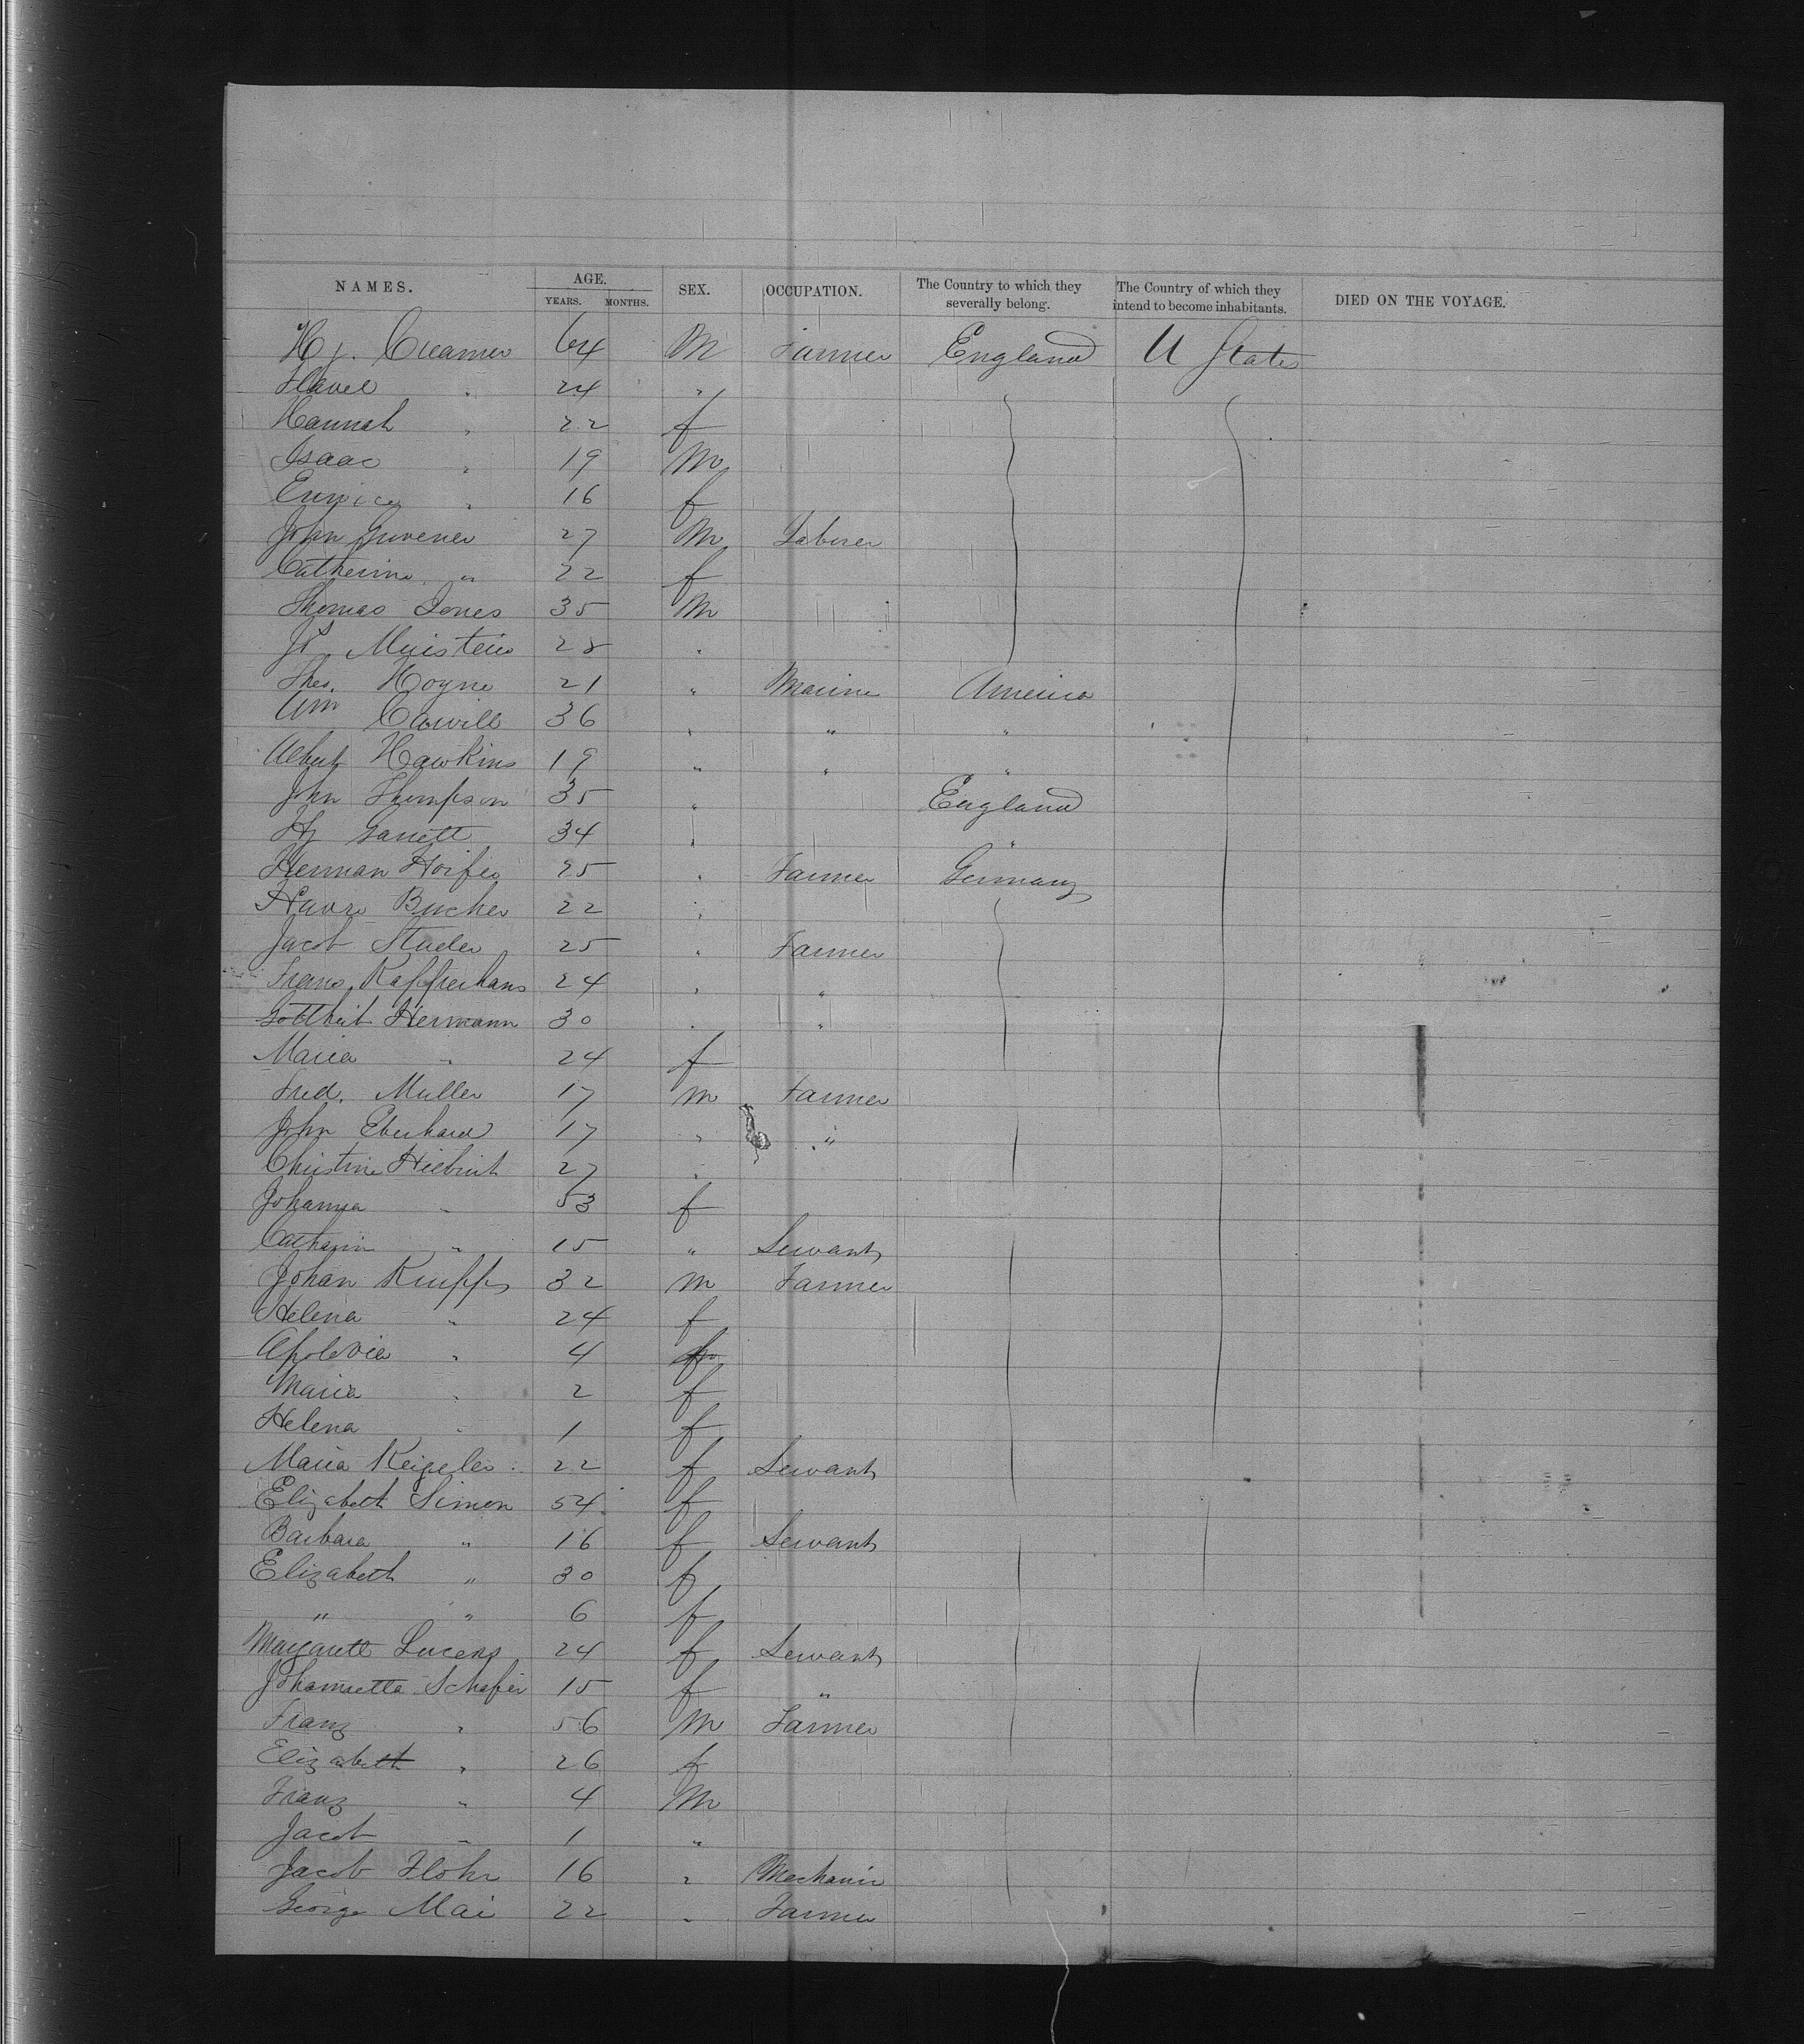 NAMES. AGE. YEARS. MONTHS. SEX. OCCUPATION. The Country to which they severally belong. The Country of which they intend to become inhabitants. DIED ON THE VOYAGE.
Hy. Creamer 64 M Farmer England U States
24 "
Hannah " 22 f
Isaac " 19 M
Eunice " 16 f
John 27 M Laborer
Catherine " 22 f
Thomas Jones 35 M
28 "
Thos. Hoyne 21 " Marine America
Wm Carvill 36 " " "
Albert Hawkins 19 " " "
John Thompson 35 " England
Hy Garrett 34 " "
Herman 25 " Farmer Germany
Bucher 22 "
Jacob Studer 25 " Farmer
Frans Kapperhans 24 " "
Gottheit Hermann 30 " "
Maria " 24 f
Fred. Muller 17 m Farmer
John Eberhard 17 " "
Christine 27 "
Johanna " 53 f
Catharin " 15 " Servant
Johan Krupp 32 m Farmer
Helena " 24 f
Apolonia " 4
Maria " 2 f
Helena " 1 f
Maria Keigeler 22 f Servant
Elizabeth Simon 54 f
Barbara " 16 f Servant
Elizabeth " 30 f
" " 6 f
Margarett 24 f Servant
Johannetta Schafer 15 f "
Franz " 56 M Farmer
Elizabeth " 26 f
Franz " 4 M
Jacob " 1 "
Jacob Flohr 16 " Mechanic
George Mai 22 " Farmer